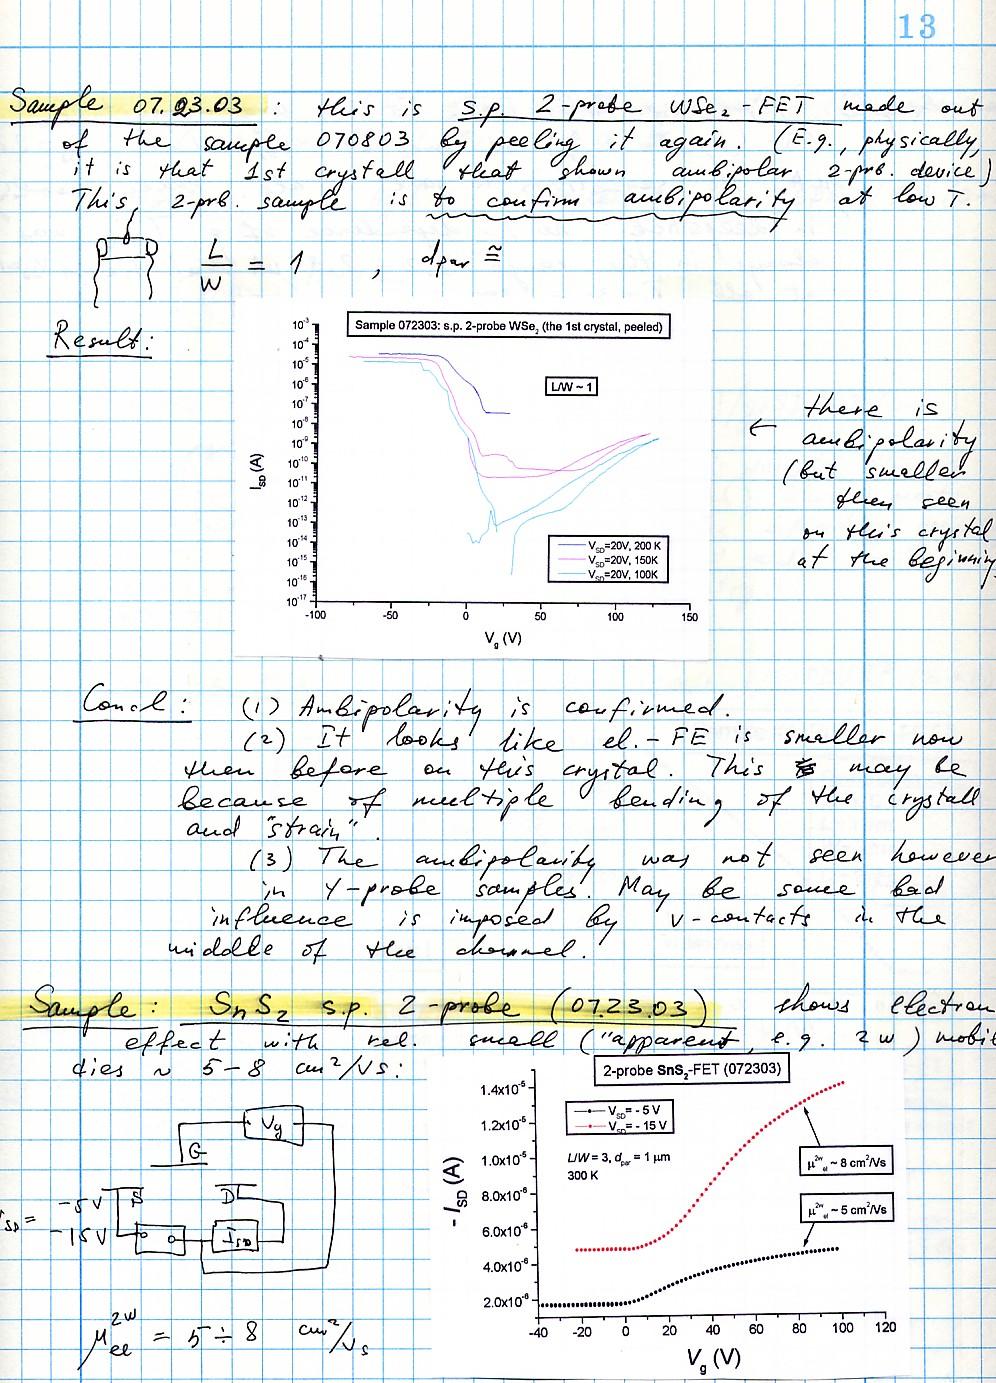 13
Sample 07.23.03 : this is s.p. 2-probe WSe₂-FET made out
of the sample 070803 by peeling it again. (E.g., physically,
it is that 1st crystall that shown ambipolar 2-prb. device)
This, 2-prb. sample is to confirm ambipolarity at low T.
L/W = 1 , dpar ≅
Result:
Sample 072303: s.p. 2-probe WSe₂ (the 1st crystal, peeled)
L/W ~ 1
10⁻³
10⁻⁴
10⁻⁵
10⁻⁶
10⁻⁷
10⁻⁸
10⁻⁹
10⁻¹⁰
10⁻¹¹
10⁻¹²
10⁻¹³
10⁻¹⁴
10⁻¹⁵
10⁻¹⁶
10⁻¹⁷
I_SD (A)
V_SD=20V, 200 K
V_SD=20V, 150K
V_SD=20V, 100K
-100 -50 0 50 100 150
V_g (V)
← there is
ambipolarity
(but smaller
then seen
on this crystal
at the beginning
Concl: (1) Ambipolarity is confirmed.
(2) It looks like el.-FE is smaller now
then before on this crystal. This may be
because of multiple bending of the crystall
and "strain".
(3) The ambipolarity was not seen however
in 4-probe samples. May be some bad
influence is imposed by V-contacts in the
middle of the channel.
Sample: SnS₂ s.p. 2-probe (072303) shows electron
effect with rel. small ("apparent, e.g. 2w) mobil
dies ~ 5-8 cm²/Vs:
2-probe SnS₂-FET (072303)
V_SD= - 5 V
V_SD= - 15 V
L/W = 3, d_par = 1 µm
300 K
µ^2w_el ~ 8 cm²/Vs
µ^2w_el ~ 5 cm²/Vs
1.4x10⁻⁵
1.2x10⁻⁵
1.0x10⁻⁵
8.0x10⁻⁶
6.0x10⁻⁶
4.0x10⁻⁶
2.0x10⁻⁶
- I_SD (A)
-40 -20 0 20 40 60 80 100 120
V_g (V)
Vg
G
-5V S D
SD =
-15V I_SD
µ^2w_ee = 5 ÷ 8 cm²/Vs